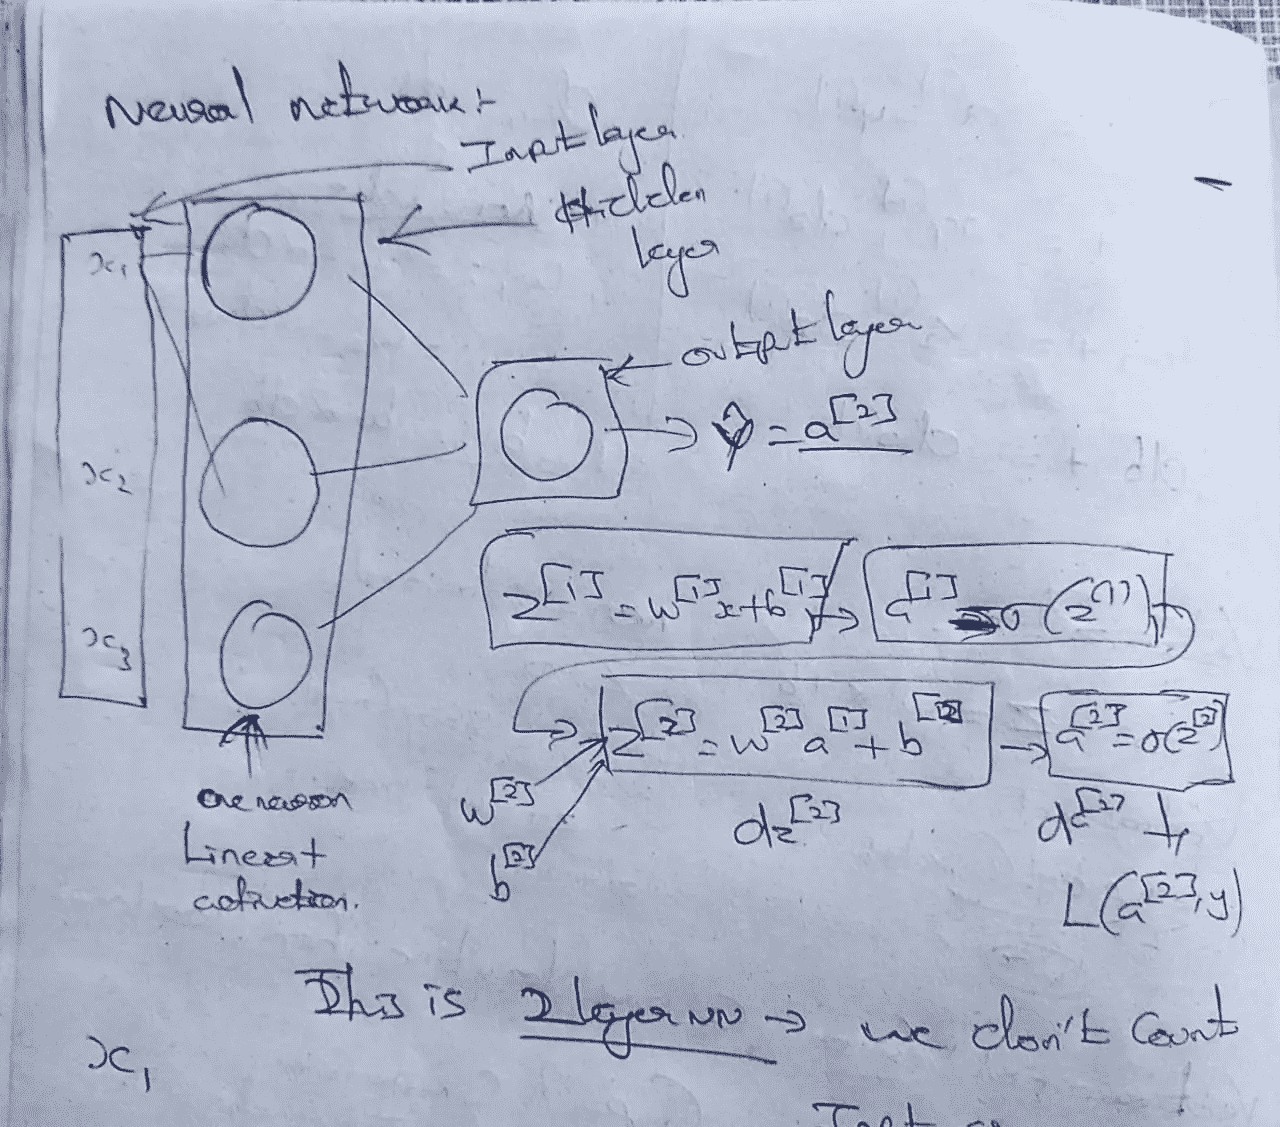 Neural network :-
Input layer
Hidden
layer
x₁
output layer
ŷ = a^[2]
x₂
z^[1] = w^[1]x+b^[1] → a^[1] = σ(z^(1))
x₃
z^[2] = w^[2]a^[1] + b^[2] → a^[2] = σ(z^[2])
w^[2]
dz^[2]
da^[2]
b^[2]
Linear +
activation.
L(a^[2], y)
This is 2 layer NN → we don't count
x₁